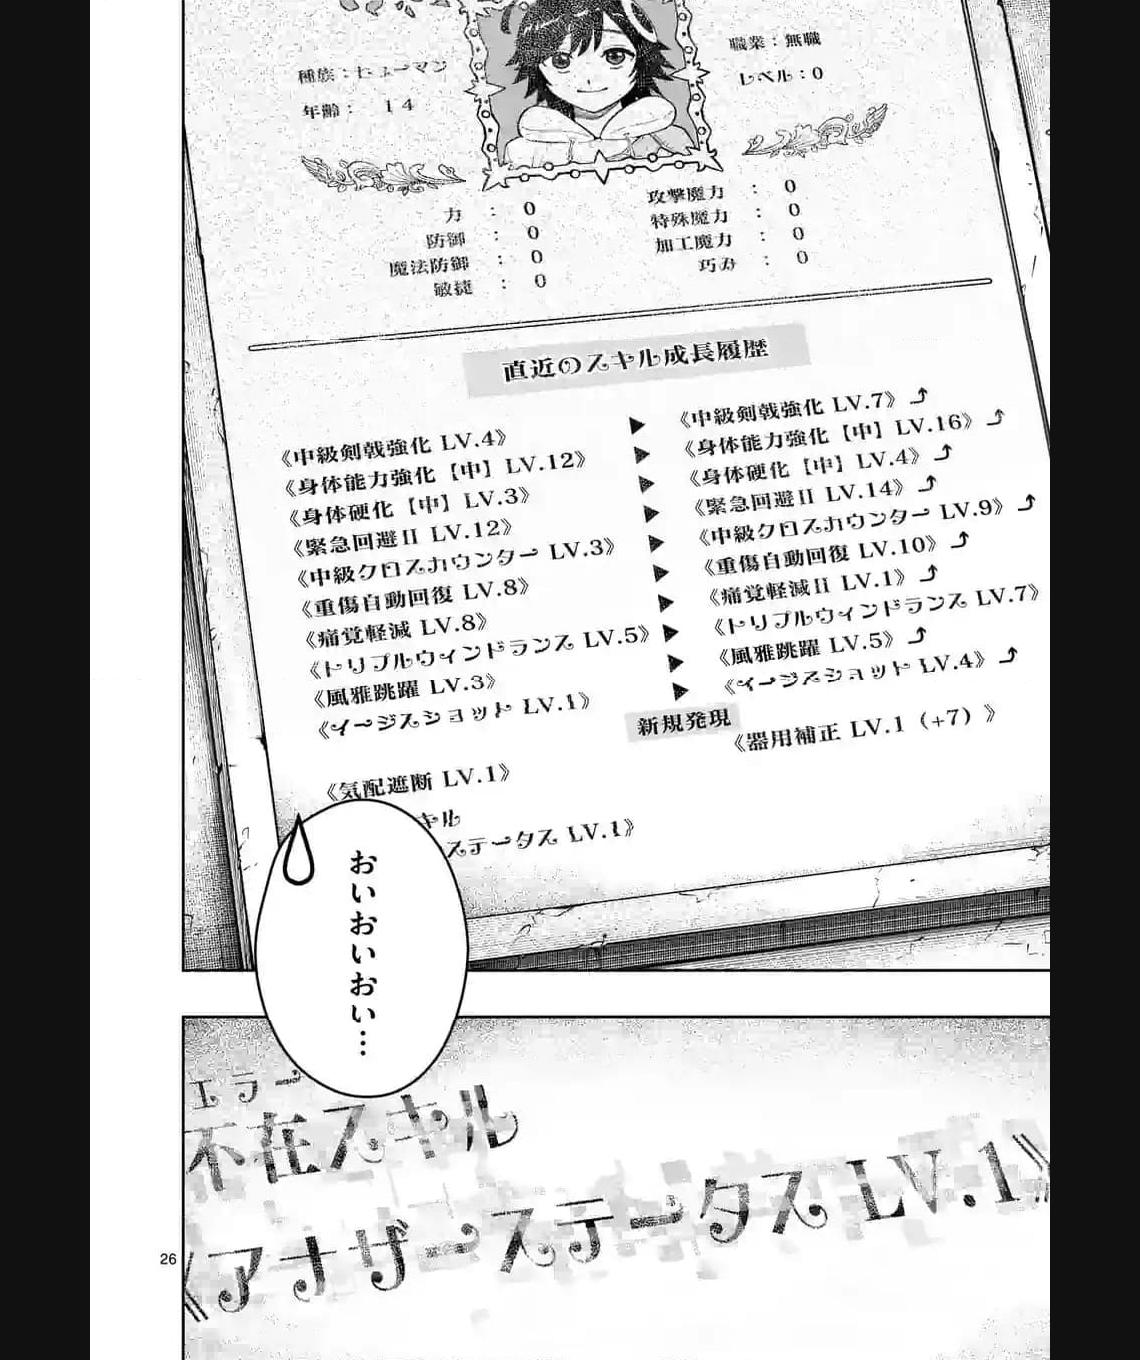 種族：ヒューマン
年齢： １４
職業：無職
レベル：0
力 ： 0
防御 ： 0
魔法防御 ： 0
敏捷 ： 0
攻撃魔力 ： 0
特殊魔力 ： 0
加工魔力 ： 0
巧み ： 0
直近のスキル成長履歴
《中級剣戟強化 LV.4》 ▶ 《中級剣戟強化 LV.7》⤴
《身体能力強化【中】LV.12》 ▶ 《身体能力強化【中】LV.16》⤴
《身体硬化【中】LV.3》 ▶ 《身体硬化【中】LV.4》⤴
《緊急回避Ⅱ LV.12》 ▶ 《緊急回避Ⅱ LV.14》⤴
《中級クロスカウンター LV.3》 ▶ 《中級クロスカウンター LV.9》⤴
《重傷自動回復 LV.8》 ▶ 《重傷自動回復 LV.10》⤴
《痛覚軽減 LV.8》 ▶ 《痛覚軽減Ⅱ LV.1》⤴
《トリプルウィンドランス LV.5》 ▶ 《トリプルウィンドランス LV.7》
《風雅跳躍 LV.3》 ▶ 《風雅跳躍 LV.5》⤴
《イージスショット LV.1》 ▶ 《イージスショット LV.4》⤴
新規発現
《気配遮断 LV.1》 《器用補正 LV.1（+7）》
キル
ステータス LV.1》
おいおいおい…
エラー
不在スキル
《アナザーステータス LV.1》
26